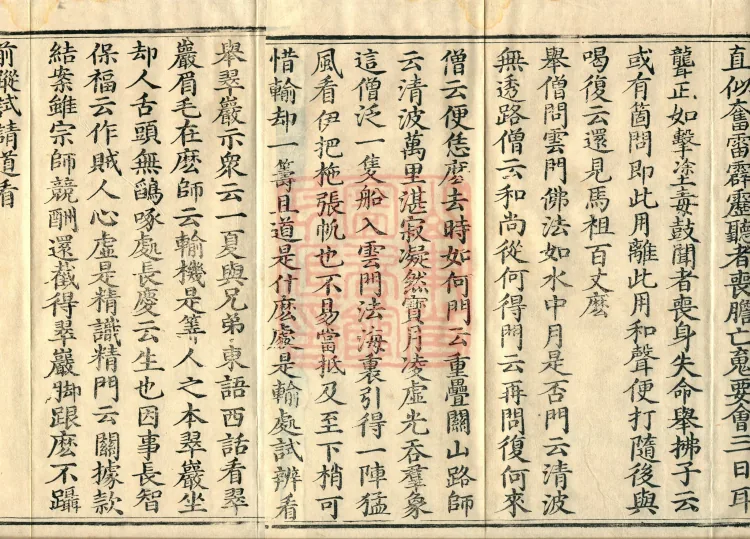 直似奮雷霹靂聽者喪膽亡䰟要會三日耳
聾正如擊塗毒鼓聞者喪身失命舉拂子云
或有箇問即此用離此用和聲便打隨後與
喝復云還見馬祖百丈麽
舉僧問雲門佛法如水中月是否門云清波
無透路僧云和尚從何得門云再問復何來
僧云便恁麽去時如何門云重疊關山路師
云清波萬里湛寂凝然寶月凌虛光吞羣象
這僧泛一隻船入雲門法海裏引得一陣猛
風看伊把柂張帆也不易當抵及至下梢可
惜輸却一籌且道是什麽處是輸處試辨看
舉翠巖示衆云一夏與兄弟東語西話看翠
巖眉毛在麽師云輸機是筭人之本翠巖坐
却人舌頭無鷁啄處長慶云生也因事長智
保福云作賊人心虛是精識精門云關據款
結案雖宗師競酬還截得翠巖脚跟麽不躡
前蹤試請道看